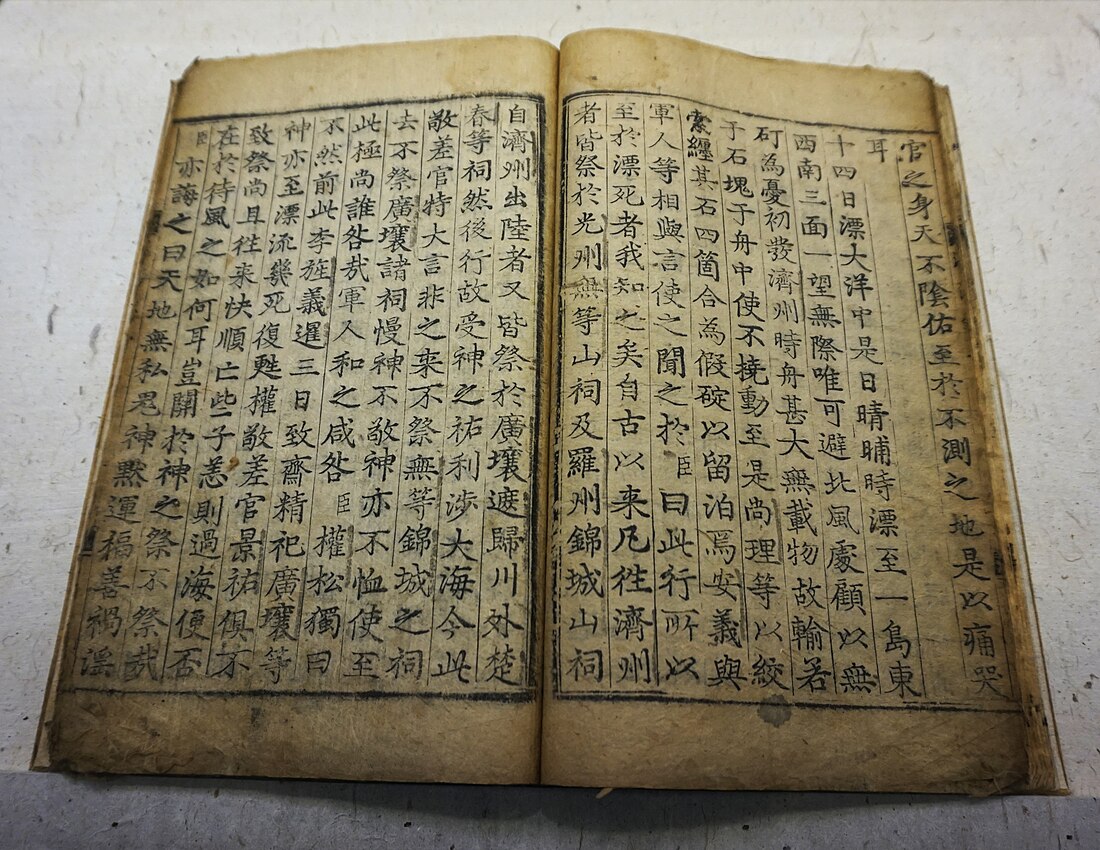 官之身天不陰佑至於不測之地是以痛哭
耳
十四日漂大洋中是日晴晡時漂至一島東
西南三面一望無際唯可避北風處顧以無
矴為憂初發濟州時舟甚大無載物故輸若
于石塊于舟中使不撓動至是尚理等以絞
索纏其石四箇合為假碇以留泊焉安義與
軍人等相與言使之聞之於臣曰此行所以
至於漂死者我知之矣自古以来凡徃濟州
者皆祭於光州無等山祠及羅州錦城山祠
自濟州出陸者又皆祭於廣壤遮歸川外楚
春等祠然後行故受神之祐利涉大海今此
敬差官特大言非之来不祭無等錦城之祠
去不祭廣壤諸祠慢神不敬神亦不恤使至
此極尚誰咎哉軍人和之咸咎臣權松獨曰
不然前此李旌義暹三日致齋精祀廣壤等
神亦至漂流幾死復甦權敬差官景祐俱不
致祭尚且徃来快順亡些子恙則過海便否
在於待風之如何耳豈關於神之祭不祭哉
臣亦誨之曰天地無私鬼神默運福善禍淫